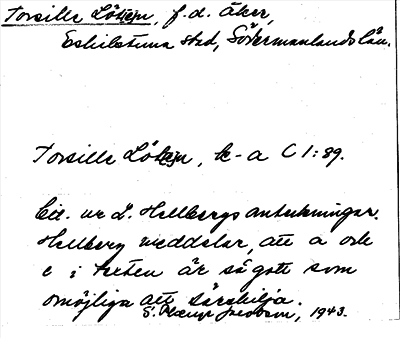 Torsilla Lötzen, f.d. åker,
Eskilstuna stad, Södermanlands län.
Torsilla Lötzen, k-a C 1:89.
Cit. ur L. Hellbergs anteckningar.
Hellberg meddelar, att a och
e i texten är så gott som
omöjliga att särskilja.
S. 1943.